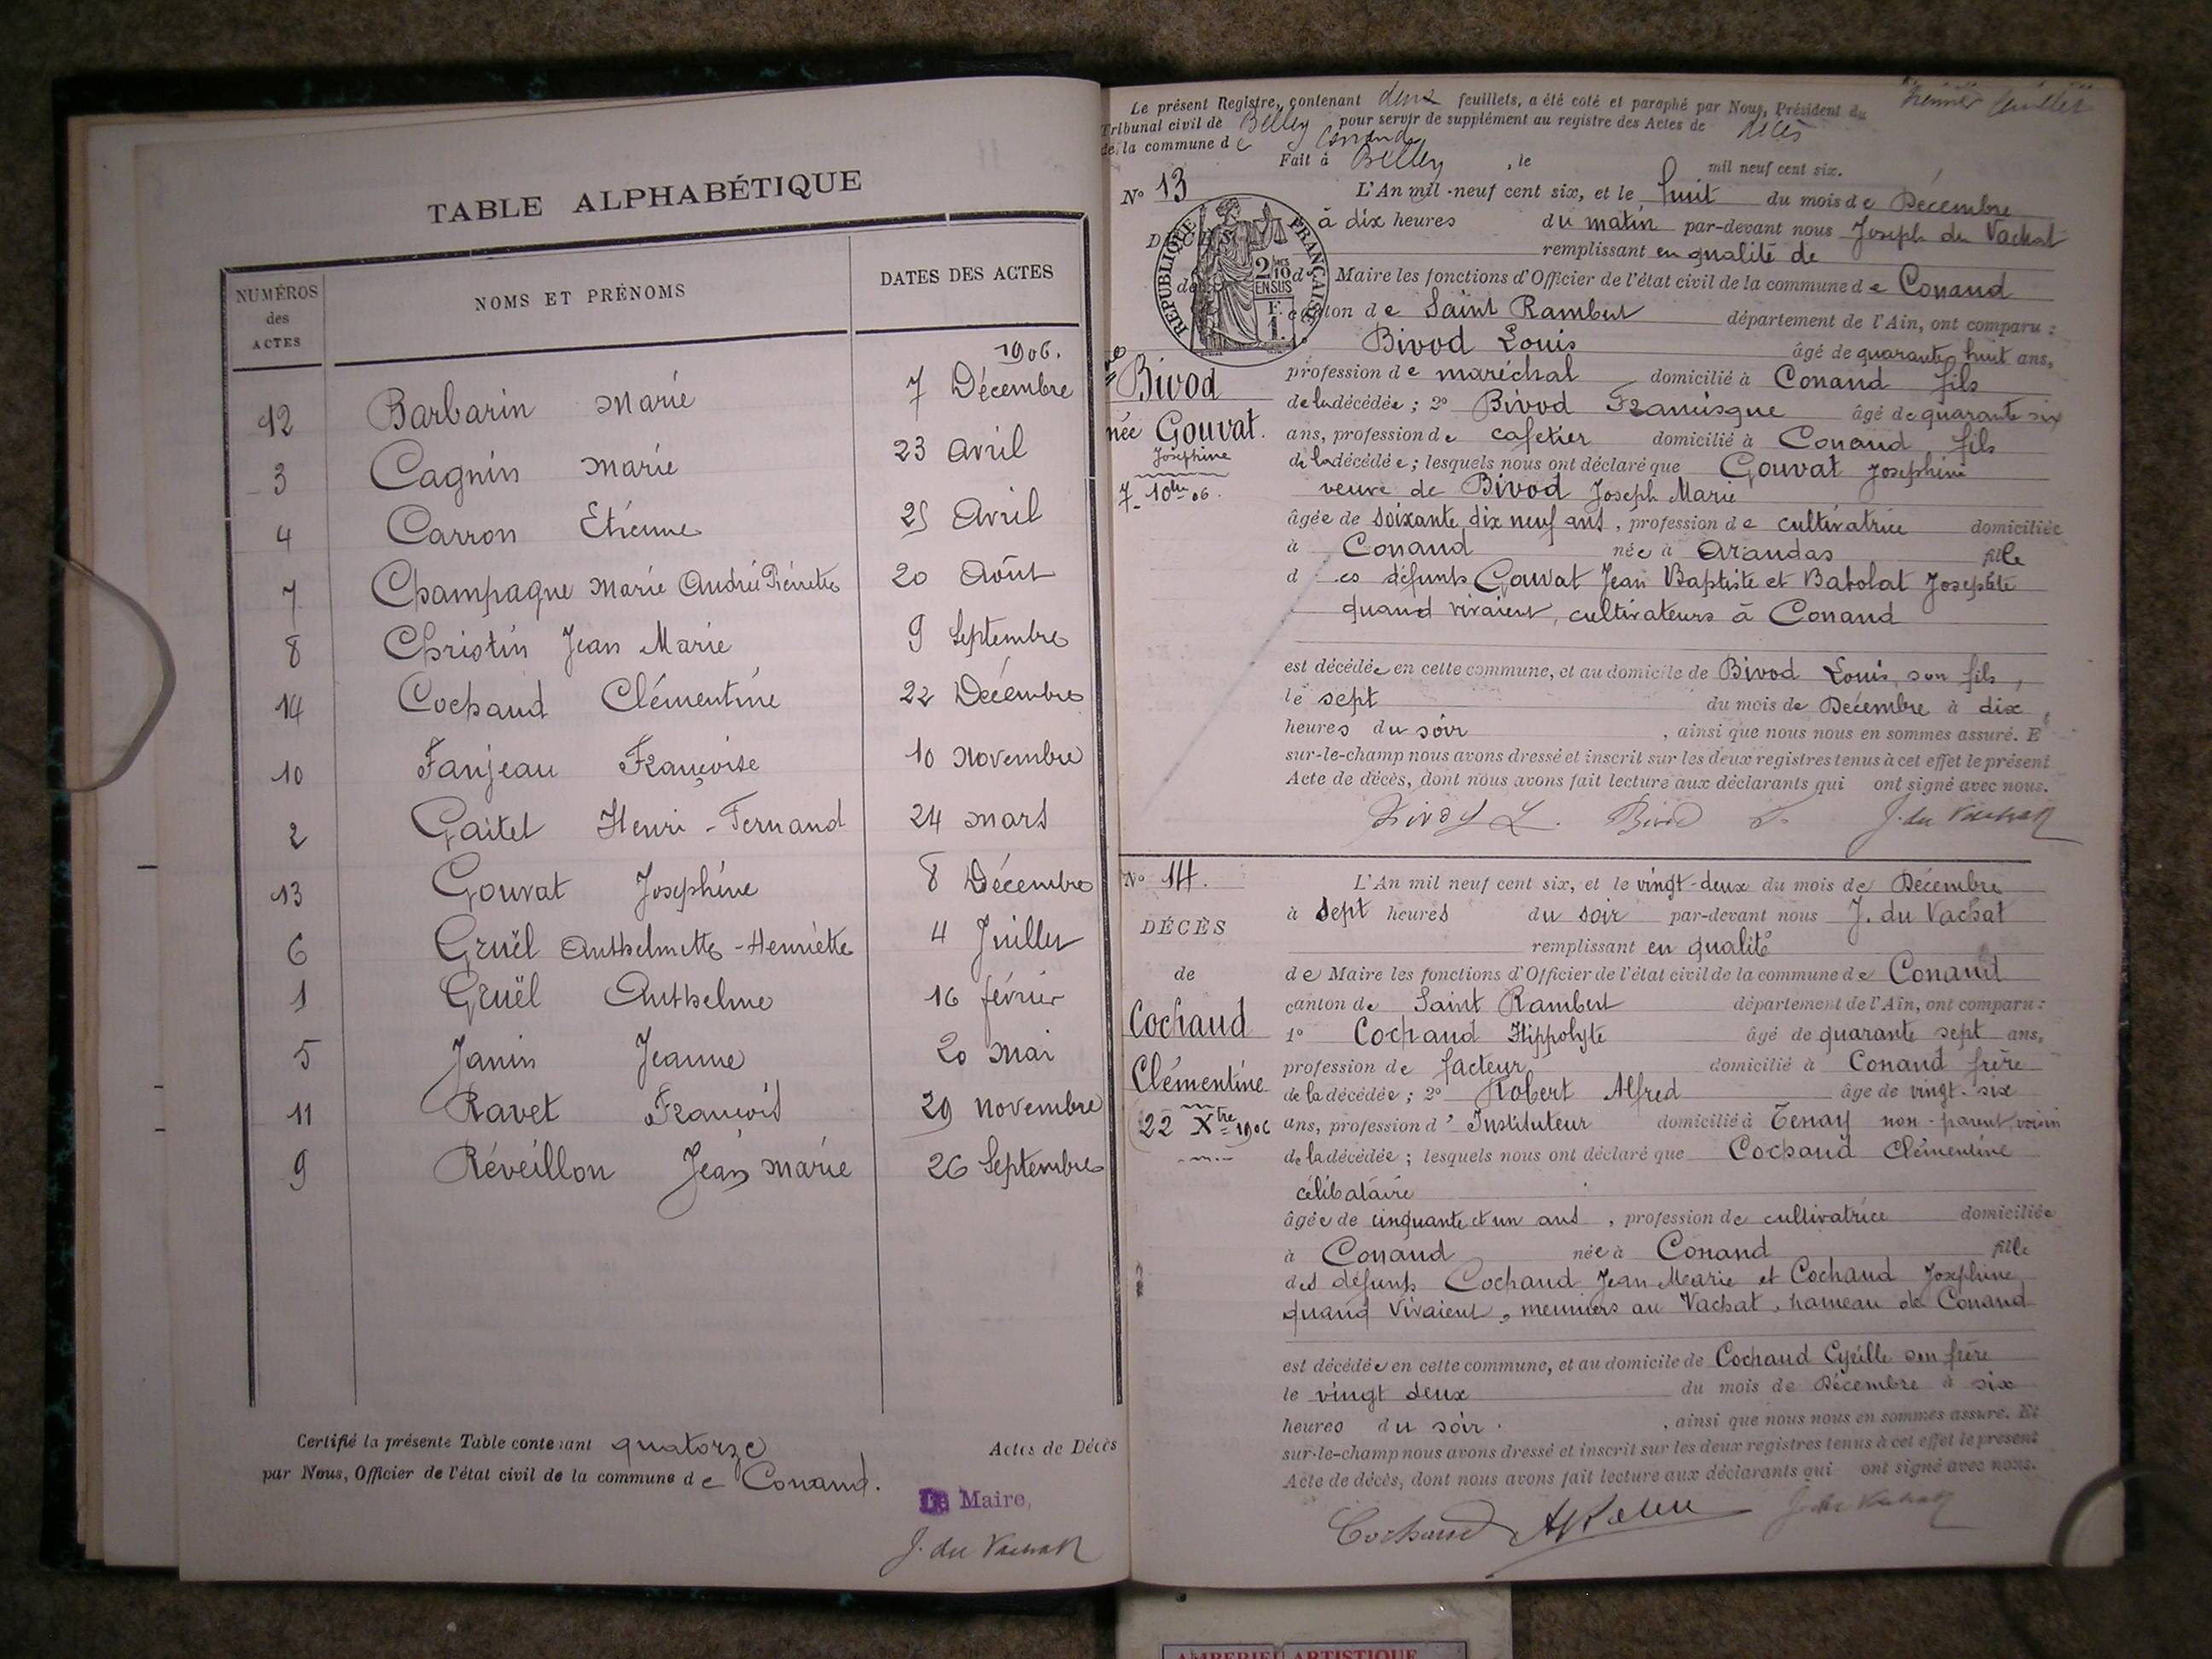 TABLE ALPHABÉTIQUE
NUMÉROS des ACTES
NOMS ET PRÉNOMS
DATES DES ACTES
1906.
12 Barbarin Marie 7 Décembre
3 Cagnin Marie 23 Avril
4 Carron Etienne 25 Avril
7 Champagne Marie André 20 Août
8 Christin Jean Marie 9 Septembre
14 Cochaud Clémentine 22 Décembre
10 Fanjeau Françoise 10 Novembre
2 Gaitet Henri-Fernand 24 Mars
13 Gouvat Joséphine 8 Décembre
6 Gruël Anthelmette-Henriette 4 Juillet
1 Gruël Anthelme 16 février
5 Janin Jeanne 20 Mai
11 Ravet François 29 Novembre
9 Réveillon Jean Marie 26 Septembre
Certifié la présente Table contenant quatorze Actes de Décès
par Nous, Officier de l'état civil de la commune de Conand.
Le Maire,
J. du Vachat
Le présent Registre, contenant deux feuillets, a été coté et paraphé par Nous, Président du
premier feuillet
Tribunal civil de Belley pour servir de supplément au registre des Actes de décès
de la commune de Conand
Fait à Belley, le mil neuf cent six.
N° 13
DÉCÈS
de
RÉPUBLIQUE FRANÇAISE
2/10 EN SUS
1 F.
Bivod
née Gouvat.
Joséphine
7 - 10bre 06.
L'An mil-neuf cent six, et le huit du mois de Décembre
à dix heures du matin par-devant nous Joseph du Vachat
remplissant en qualité de
Maire les fonctions d'Officier de l'état civil de la commune de Conand
canton de Saint Rambert département de l'Ain, ont comparu :
Bivod Louis âgé de quarante huit ans,
profession de maréchal domicilié à Conand fils
de la décédée ; 2° Bivod Francisque âgé de quarante six
ans, profession de cafetier domicilié à Conand fils
de la décédée ; lesquels nous ont déclaré que Gouvat Joséphine
veuve de Bivod Joseph Marie
âgée de soixante dix neuf ans, profession de cultivatrice domiciliée
à Conand née à Arandas fille
des défunts Gouvat Jean Baptiste et Babolat Josephte
quand vivaient, cultivateurs à Conand
est décédée en cette commune, et au domicile de Bivod Louis, son fils,
le sept du mois de Décembre à dix
heures du soir, ainsi que nous nous en sommes assuré. E
sur-le-champ nous avons dressé et inscrit sur les deux registres tenus à cet effet le présent
Acte de décès, dont nous avons fait lecture aux déclarants qui ont signé avec nous.
Bivod L. Bivod J. du Vachat
N° 14.
DÉCÈS
de
Cochaud
Clémentine
22 Xbre 1906
L'An mil neuf cent six, et le vingt-deux du mois de Décembre
à sept heures du soir par-devant nous J. du Vachat
remplissant en qualité
de Maire les fonctions d'Officier de l'état civil de la commune de Conand
canton de Saint Rambert département de l'Ain, ont comparu :
1° Cochaud Hippolyte âgé de quarante sept ans,
profession de facteur domicilié à Conand frère
de la décédée ; 2° Robert Alfred âgé de vingt-six
ans, profession d'Instituteur domicilié à Tenay non-parent, voisin
de la décédée ; lesquels nous ont déclaré que Cochaud Clémentine
célibataire
âgée de cinquante et un ans, profession de cultivatrice domiciliée
à Conand née à Conand fille
des défunts Cochaud Jean Marie et Cochaud Joséphine
quand vivaient, meuniers au Vachat, hameau de Conand
est décédée en cette commune, et au domicile de Cochaud Cyrille son frère
le vingt deux du mois de Décembre à six
heures du soir. , ainsi que nous nous en sommes assuré. Et
sur-le-champ nous avons dressé et inscrit sur les deux registres tenus à cet effet le présent
Acte de décès, dont nous avons fait lecture aux déclarants qui ont signé avec nous.
Cochaud J. du Vachat
AMBERIEU ARTISTIQUE